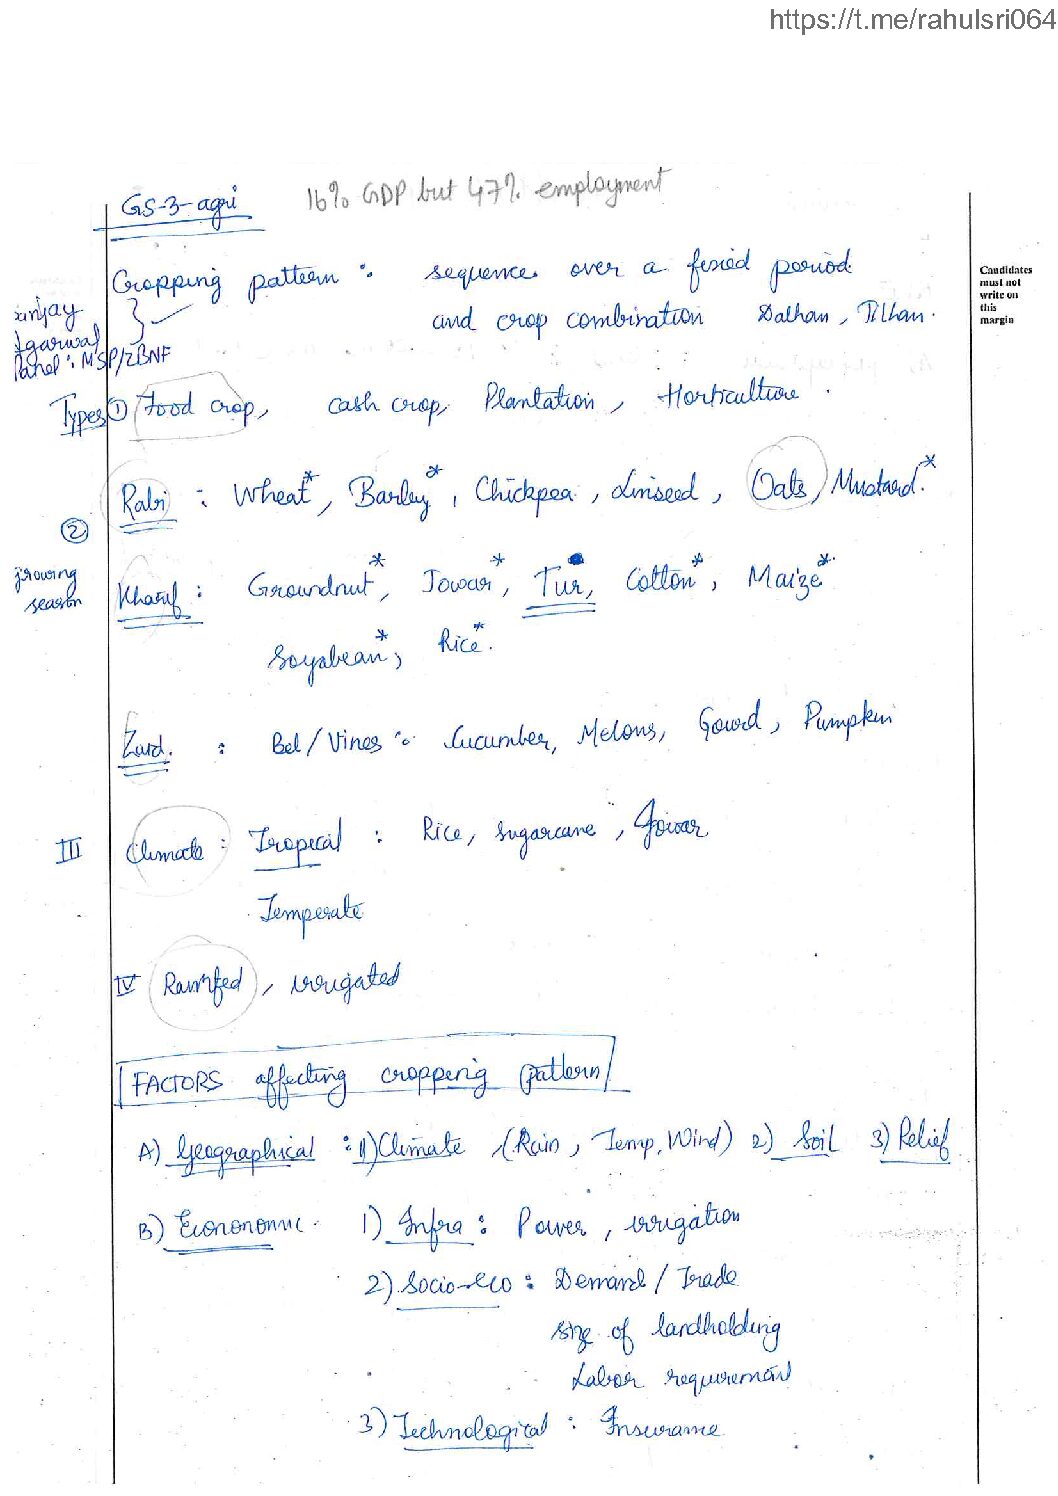 https://t.me/rahulsri064
GS-3-agri
16% GDP but 47% employment
Cropping pattern : sequence over a fixed period
and crop combination Dalhan, Tilhan.
Sanjay
Agarwal
Panel : MSP/ZBNF
Candidates
must not
write on
this
margin
Types ① Food crop, cash crop, Plantation, Horticulture.
Rabi : Wheat*, Barley*, Chickpea, Linseed, Oats, Mustard.*
②
growing
season
Kharif : Groundnut*, Jowar*, Tur, Cotton*, Maize*
Soyabean*, Rice*.
Zaid. : Bel/Vines : Cucumber, Melons, Gourd, Pumpkin
III Climate : Tropical : Rice, Sugarcane, Jowar
Temperate
IV Rainfed, irrigated
FACTORS affecting cropping pattern
A) Geographical : 1) Climate (Rain, Temp, Wind) 2) Soil 3) Relief
B) Econonomic. 1) Infra : Power, irrigation
2) Socio-eco : Demand / Trade
size of landholding
Labor requirement
3) Technological : Insurance